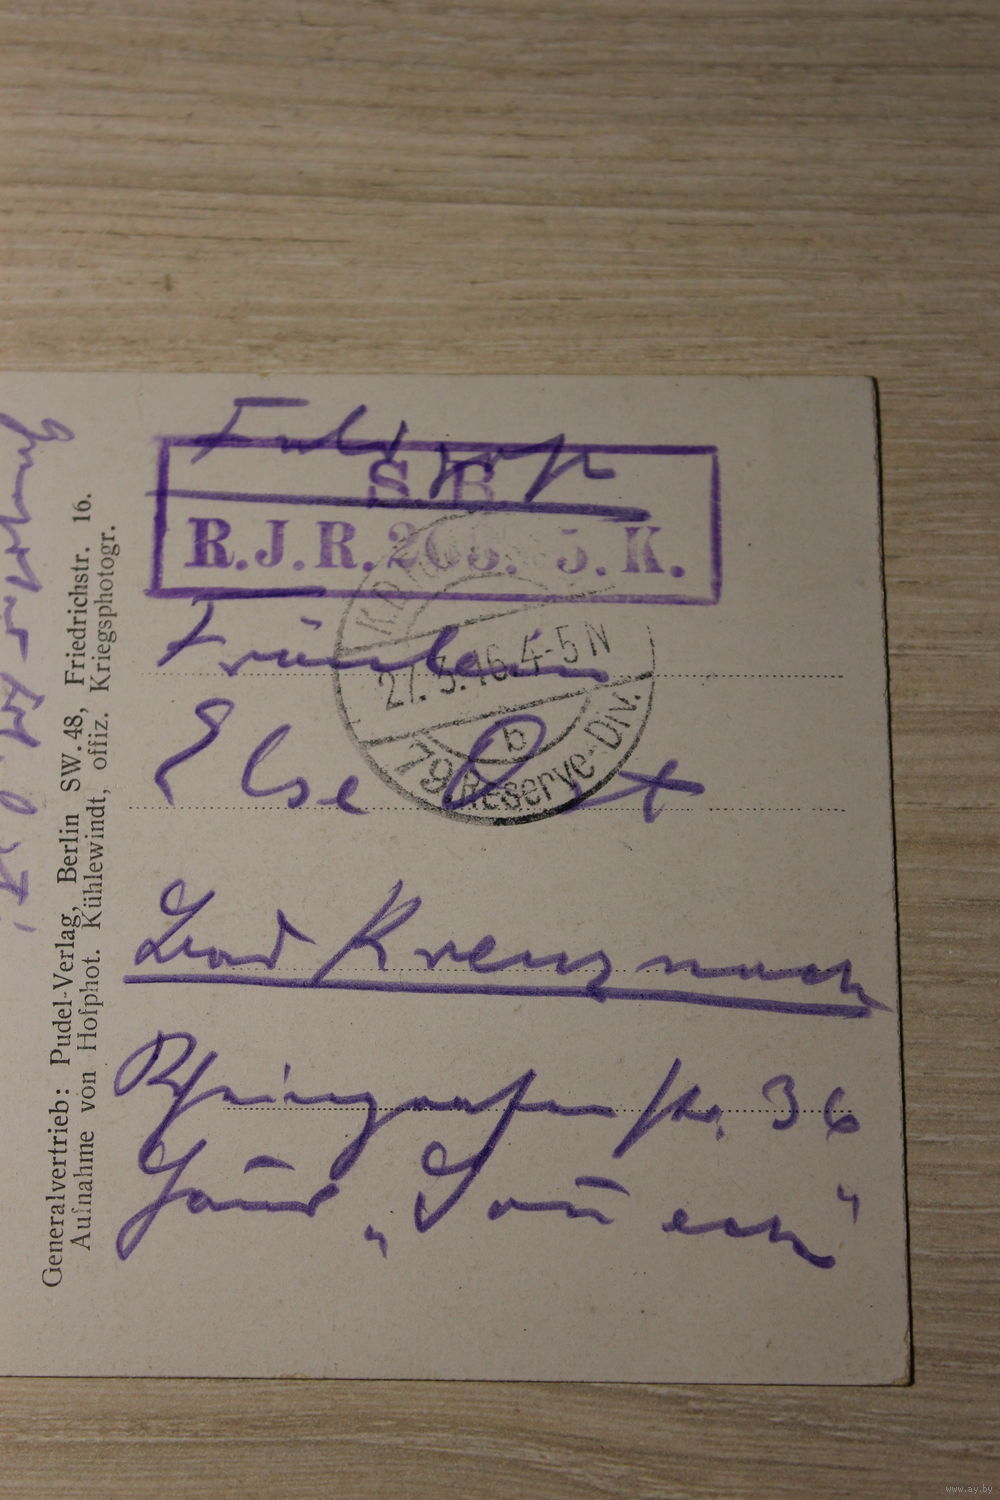 Feldpost
S. B.
R.J.R. 263. 5. K.
27.3.16 4-5N
b
79. Reserve-Div.
Fräulein
Else
Bad Kreuznach
Rheingrafenstr. 36
Haus „
Generalvertrieb: Pudel-Verlag, Berlin SW. 48, Friedrichstr. 16.
Aufnahme von Hofphot. Kühlewindt, offiz. Kriegsphotogr.
www.ay.by